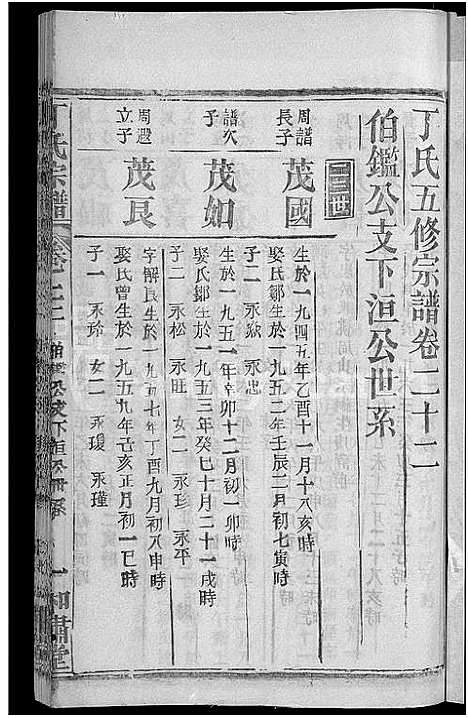 丁氏五修宗譜卷二十二
伯鑑公支下洹公世系
二三世
周譜長子
茂國
生於一九四五年乙酉十一月十八亥時
娶氏鄒生於一九五二年壬辰二月初七寅時
子二 永嶽 永忠
譜次子
茂如
生於一九五一年辛卯十二月初一卯時
娶氏鄒生於一九五三年癸巳十月二十一戌時
子二 永松 永旺 女二 永珍 永平
周遐立子
茂良
字解良生於一九五七年丁酉九月初八申時
娶氏曾生於一九五九年己亥正月初一巳時
子一 永玲 女二 永瓊 永瑾
丁氏宗譜
卷之二二
伯鑑公支下洹公世系
一
和肅堂